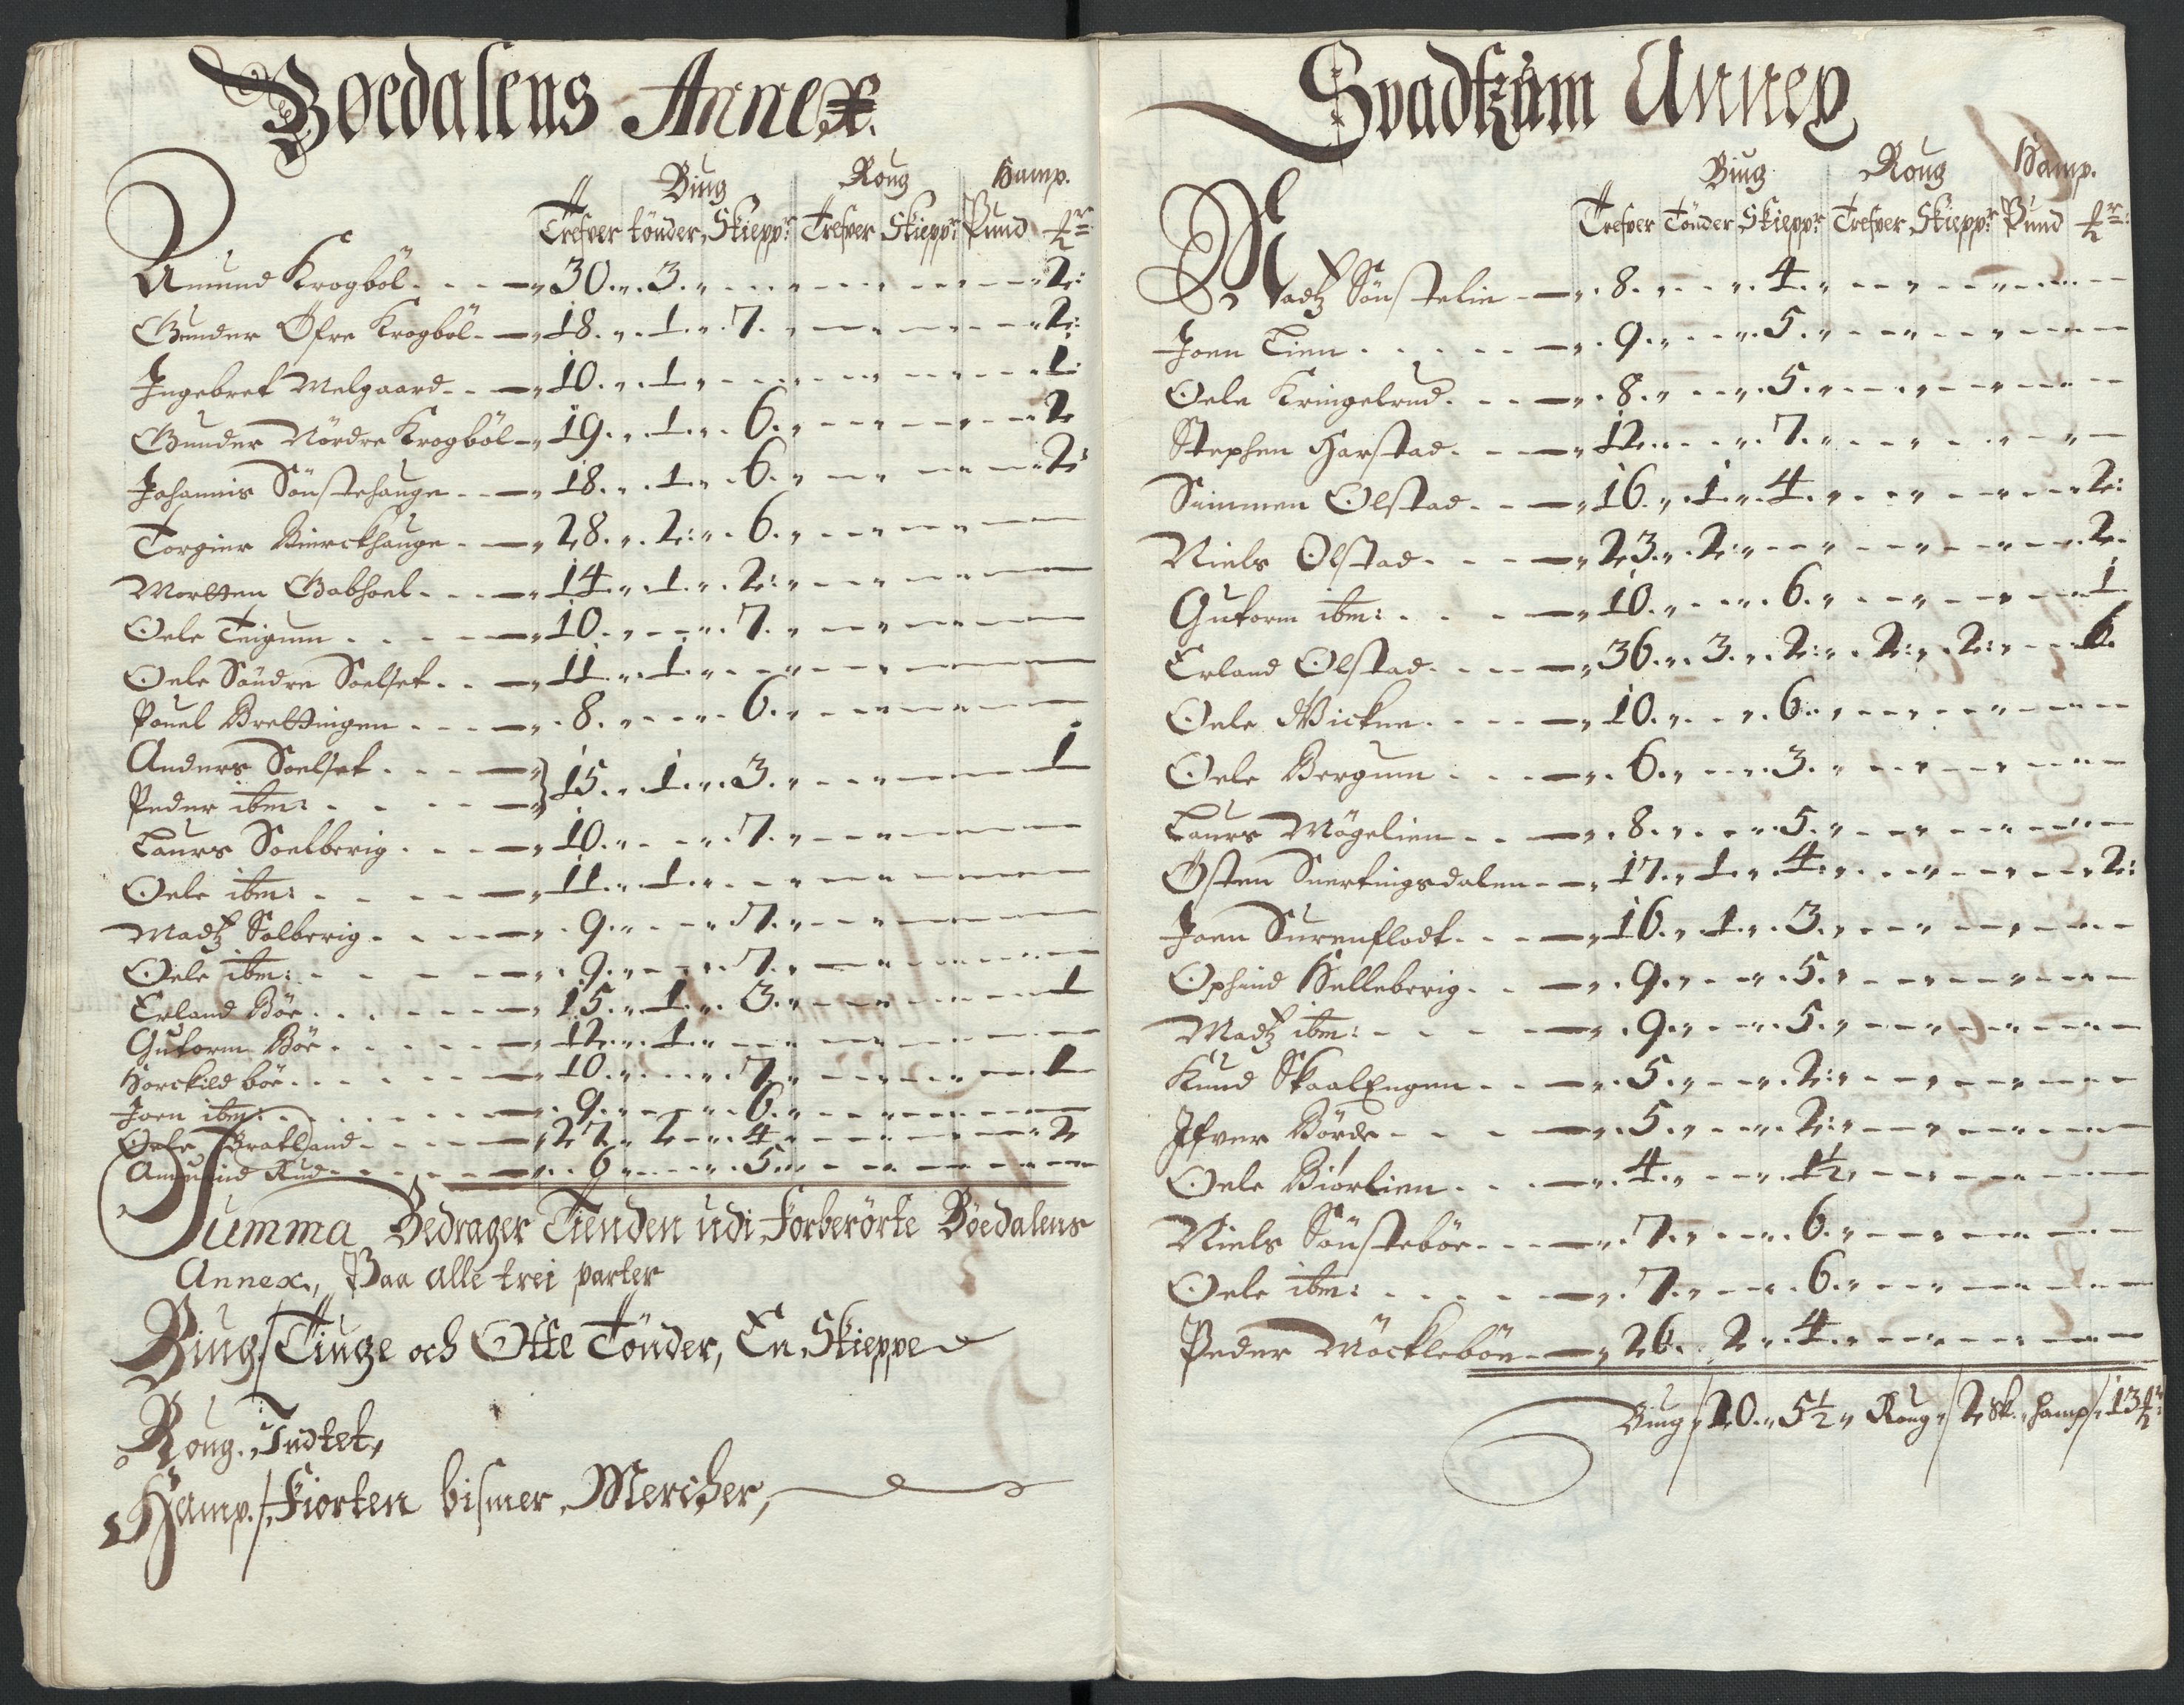 Boedalens Annex.
Biug Roug Hamp.
Trefver tönder Skiepp: Trefver Skiepp: Pund
Amund Krogböl - 30 . 3 . . . . 2:
Gunder Öfre Krogböl - 18 . 1 . 7 . . . 2:
Ingebret Melgaard - 10 . 1 . . . . 1:
Gunder Nördre Krogböl - 19 . 1 . 6 . . . 2
Johannis Sönstehauge - 18 . 1 . 6 . . . 2:
Torgier Bierckhauge - 28 . 2: . 6 .
Mortten Gabhoel - 14 . 1 . 2: .
Oele Teigum - 10 . . 7 .
Oele Söndre Soelset - 11 . 1 .
Pouel Brettingen - 8 . . 6 .
Anders Soelset - } 15 . 1 . 3 . . . 1
Peder ibm: -
Laurs Soelberig - 10 . . 7 .
Oele ibm: - 11 . 1 .
Madtz Solberig - 9 . . 7 .
Oele ibm: - 9 . . 7 .
Erland Böe - 15 . 1 . 3 . . . 1
Gutorm Böe - 12 . 1 .
Torckild böe - 10 . . 7 . . . 1
Joen ibm: - 9 . . 6 .
Oele Bratland - 27 . 2 . 4 . . . 2
Amund Rud - 6 . . 5 .
Summa Bedrager Tienden udi Forberörte Böedalens
Annex, Paa alle trei parter
Biug / Tiuge och Otte Tönder, En Skieppe
Roug. Indtet,
Hamp. / Fiorten bismer Mercher,
Svadtzum Annex
Biug Roug Hamp.
Trefver Tönder Skiepp: Trefver Skiepp: Pund
Madtz Sönstelie - 8 . . 4 .
Joen Lien - 9 . . 5 .
Oele Kringelrud - 8 . . 5 .
Stephen Harstad - 12 . . 7 .
Simmen Olstad - 16 . 1 . 4 . . . 2:
Niels Olstad - 23 . 2: . . . . 2
Gutorm ibm: - 10 . . 6 . . . 1
Erland Olstad - 36 . 3 . 2: . 2: . 2: . 6
Oele Wickne - 10 . . 6 .
Oele Bergum - 6 . . 3 .
Laurs Mögelien - 8 . . 5 .
Östen Snertingsdalen - 17 . 1 . 4 . . . 2:
Joen Surenflodt - 16 . 1 . 3 .
Ophind Helleberig - 9 . . 5 .
Madtz ibm: - 9 . . 5 .
Knud SkaalEngen - 5 . . 2: .
Ifver Börde - 5 . . 2: .
Oele Biörlien - 4 . . 1½ .
Niels Sönsteböe - 7 . . 6 .
Oele ibm: - 7 . . 6 .
Peder Möckleböe - 26 . 2 . 4 .
Biug / 20 . 5½ . Roug / 2 sk. hamp / 13